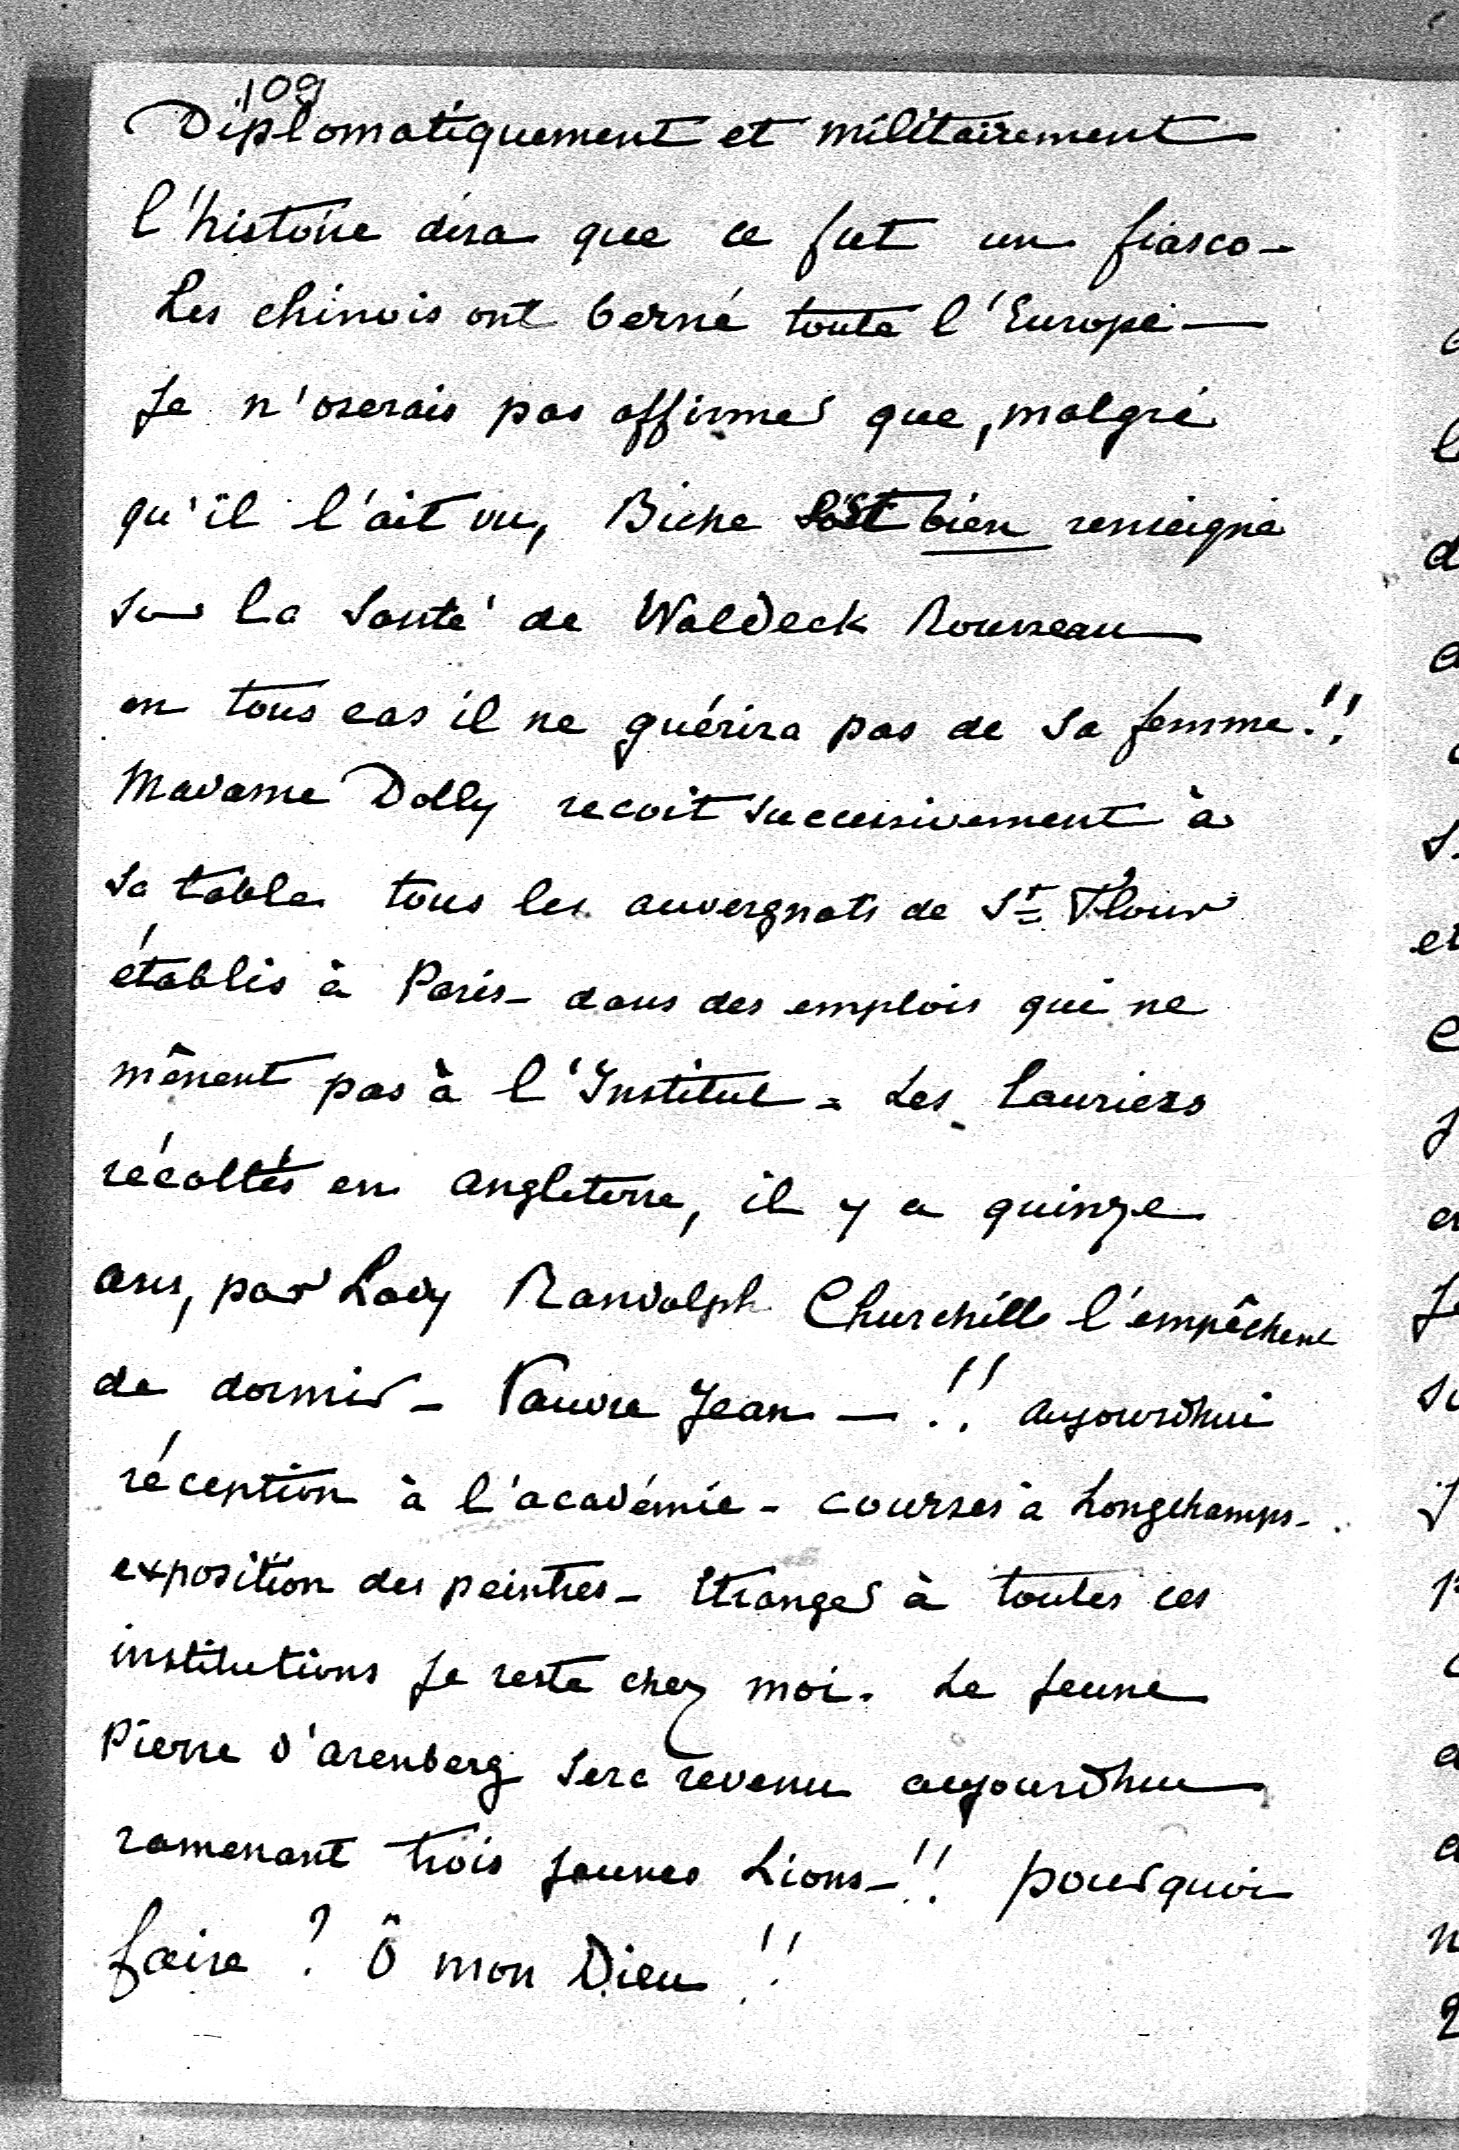 109
Diplomatiquement et militairement
l'histoire dira que ce fut un fiasco -
Les chinois ont berné toute l'Europe —
Je n'oserais pas affirmer que, malgré
qu'il l'ait vu, Biche soit bien renseigné
sur la santé de Waldeck Rousseau
en tous cas il ne guérira pas de sa femme !!
Madame Dolly recoit successivement à
sa table tous les auvergnats de St Flour
établis à Paris - dans des emplois qui ne
mènent pas à l'Institut - Les lauriers
récoltés en angleterre, il y a quinze
ans, par Lady Randolph Churchill l'empêchent
de dormir - Pauvre Jean — !! aujourdhui
réception à l'académie - courses à Longchamps -
exposition des peintres - Etranger à toutes ces
institutions je reste chez moi. Le jeune
Pierre d'arenberg sera revenu aujourdhui
ramenant trois jeunes Lions - !! pourquoi
faire ? Ô mon Dieu !!